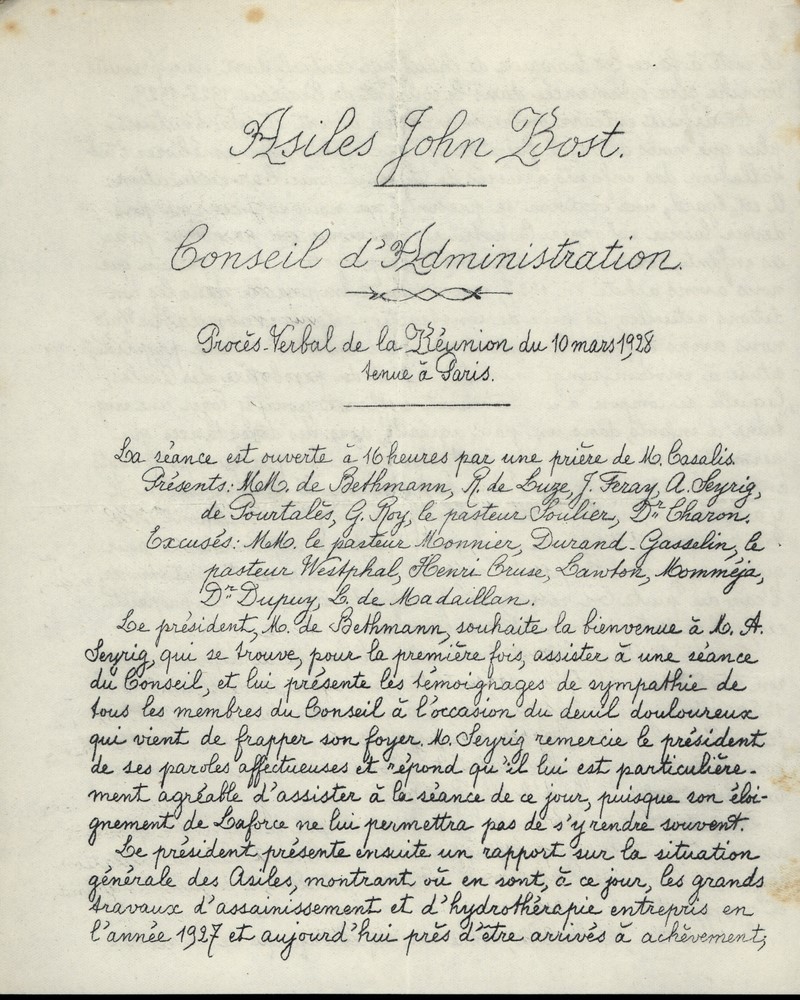 Asiles John Bost.
Conseil d'Administration.
Procès-Verbal de la Réunion du 10 mars 1928
tenue à Paris.
La séance est ouverte à 16 heures par une prière de M. Casalis.
Présents: MM. de Bethmann, R. de Luze, J. Feray, A. Seyrig,
de Pourtalès, G. Roy, le pasteur Soulier, Dr. Charon.
Excusés: MM. le pasteur Monnier, Durand-Gasselin, le
pasteur Westphal, Henri Cruse, Lawton, Momméja,
Dr. Dupuy, L. de Madaillan.
Le président, M. de Bethmann, souhaite la bienvenue à M. A.
Seyrig, qui se trouve, pour la première fois, assister à une séance
du Conseil, et lui présente les témoignages de sympathie de
tous les membres du Conseil à l'occasion du deuil douloureux
qui vient de frapper son foyer. M. Seyrig remercie le président
de ses paroles affectueuses et répond qu'il lui est particulière-
ment agréable d'assister à la séance de ce jour, puisque son éloi-
gnement de Laforce ne lui permettra pas de s'y rendre souvent.
Le président présente ensuite un rapport sur la situation
générale des Asiles, montrant où en sont, à ce jour, les grands
travaux d'assainissement et d'hydrothérapie entrepris en
l'année 1927 et aujourd'hui près d'être arrivés à achèvement;